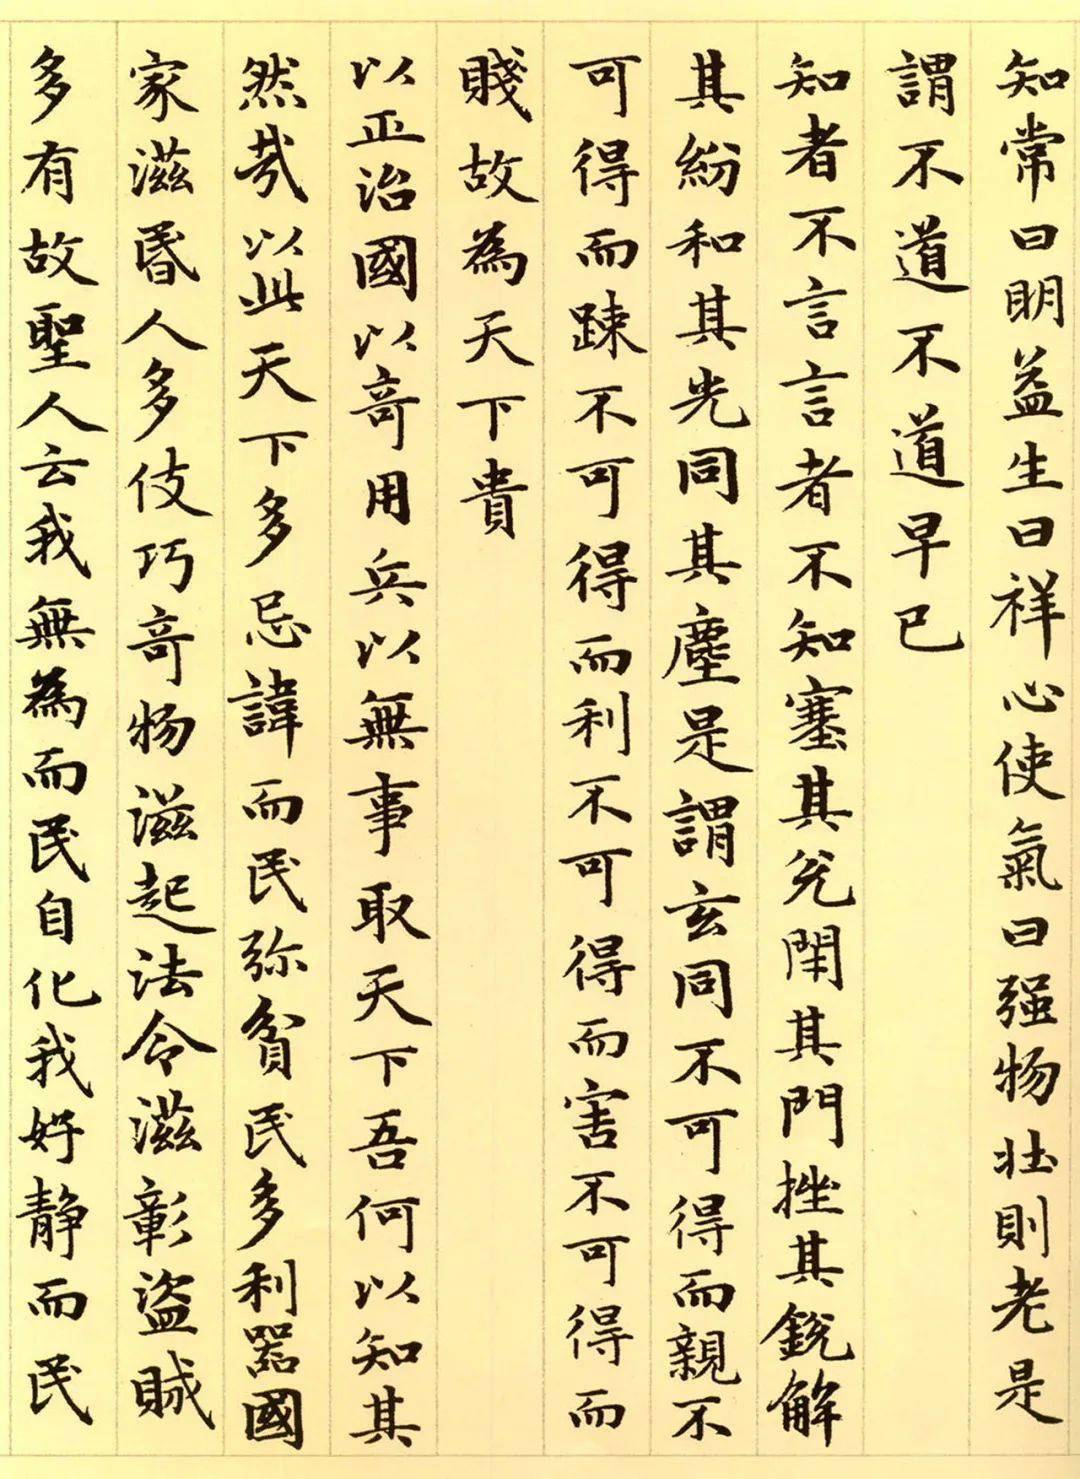 知常曰明益生曰祥心使氣曰强物壯則老是
謂不道不道早已
知者不言言者不知塞其兊閉其門挫其銳解
其紛和其光同其塵是謂玄同不可得而親不
可得而踈不可得而利不可得而害不可得而
賤故為天下貴
以正治國以竒用兵以無事取天下吾何以知其
然㢤以此天下多忌諱而民弥貧民多利器國
家滋昬人多伎巧竒物滋起法令滋彰盜賊
多有故聖人云我無為而民自化我好静而民